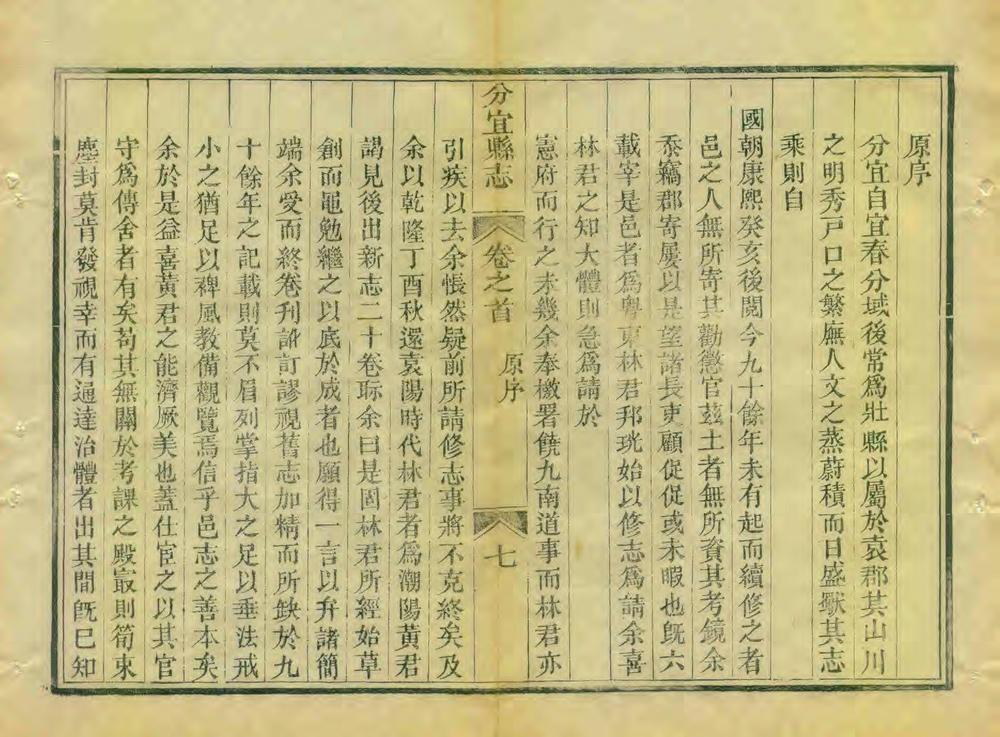 原序
分宜自宜春分域後常爲壯縣以屬於袁郡其山川
之明秀戸口之繁廡人文之蒸蔚積而日盛厭其志
乘則自
國朝康熙癸亥後閱今九十餘年未有起而續修之者
邑之人無所寄其勸懲官茲土者無所資其考鏡余
忝竊郡寄屢以是望諸長吏顧促促或未暇也旣六
載宰是邑者爲粤東林君邦珖始以修志爲請余喜
林君之知大體則急爲請於
憲府而行之未幾余奉檄署饒九南道事而林君亦
分宜縣志 卷之首 原序 七
引疾以去余悵然疑前所請修志事將不克終矣及
余以乾隆丁酉秋還袁陽時代林君者爲潮陽黃君
謁見後出新志二十卷眎余曰是固林君所經始草
創而黽勉繼之以底於成者也願得一言以弁諸簡
端余受而終卷刋訛訂謬視舊志加精而所缺於九
十餘年之記載則莫不眉列掌指大之足以垂法戒
小之猶足以裨風敎備觀覽焉信乎邑志之善本矣
余於是益喜黃君之能濟厥美也蓋仕宦之以其官
守爲傳舍者有矣苟其無關於考課之殿最則笥束
塵封莫肯發視幸而有通達治體者出其間旣已知